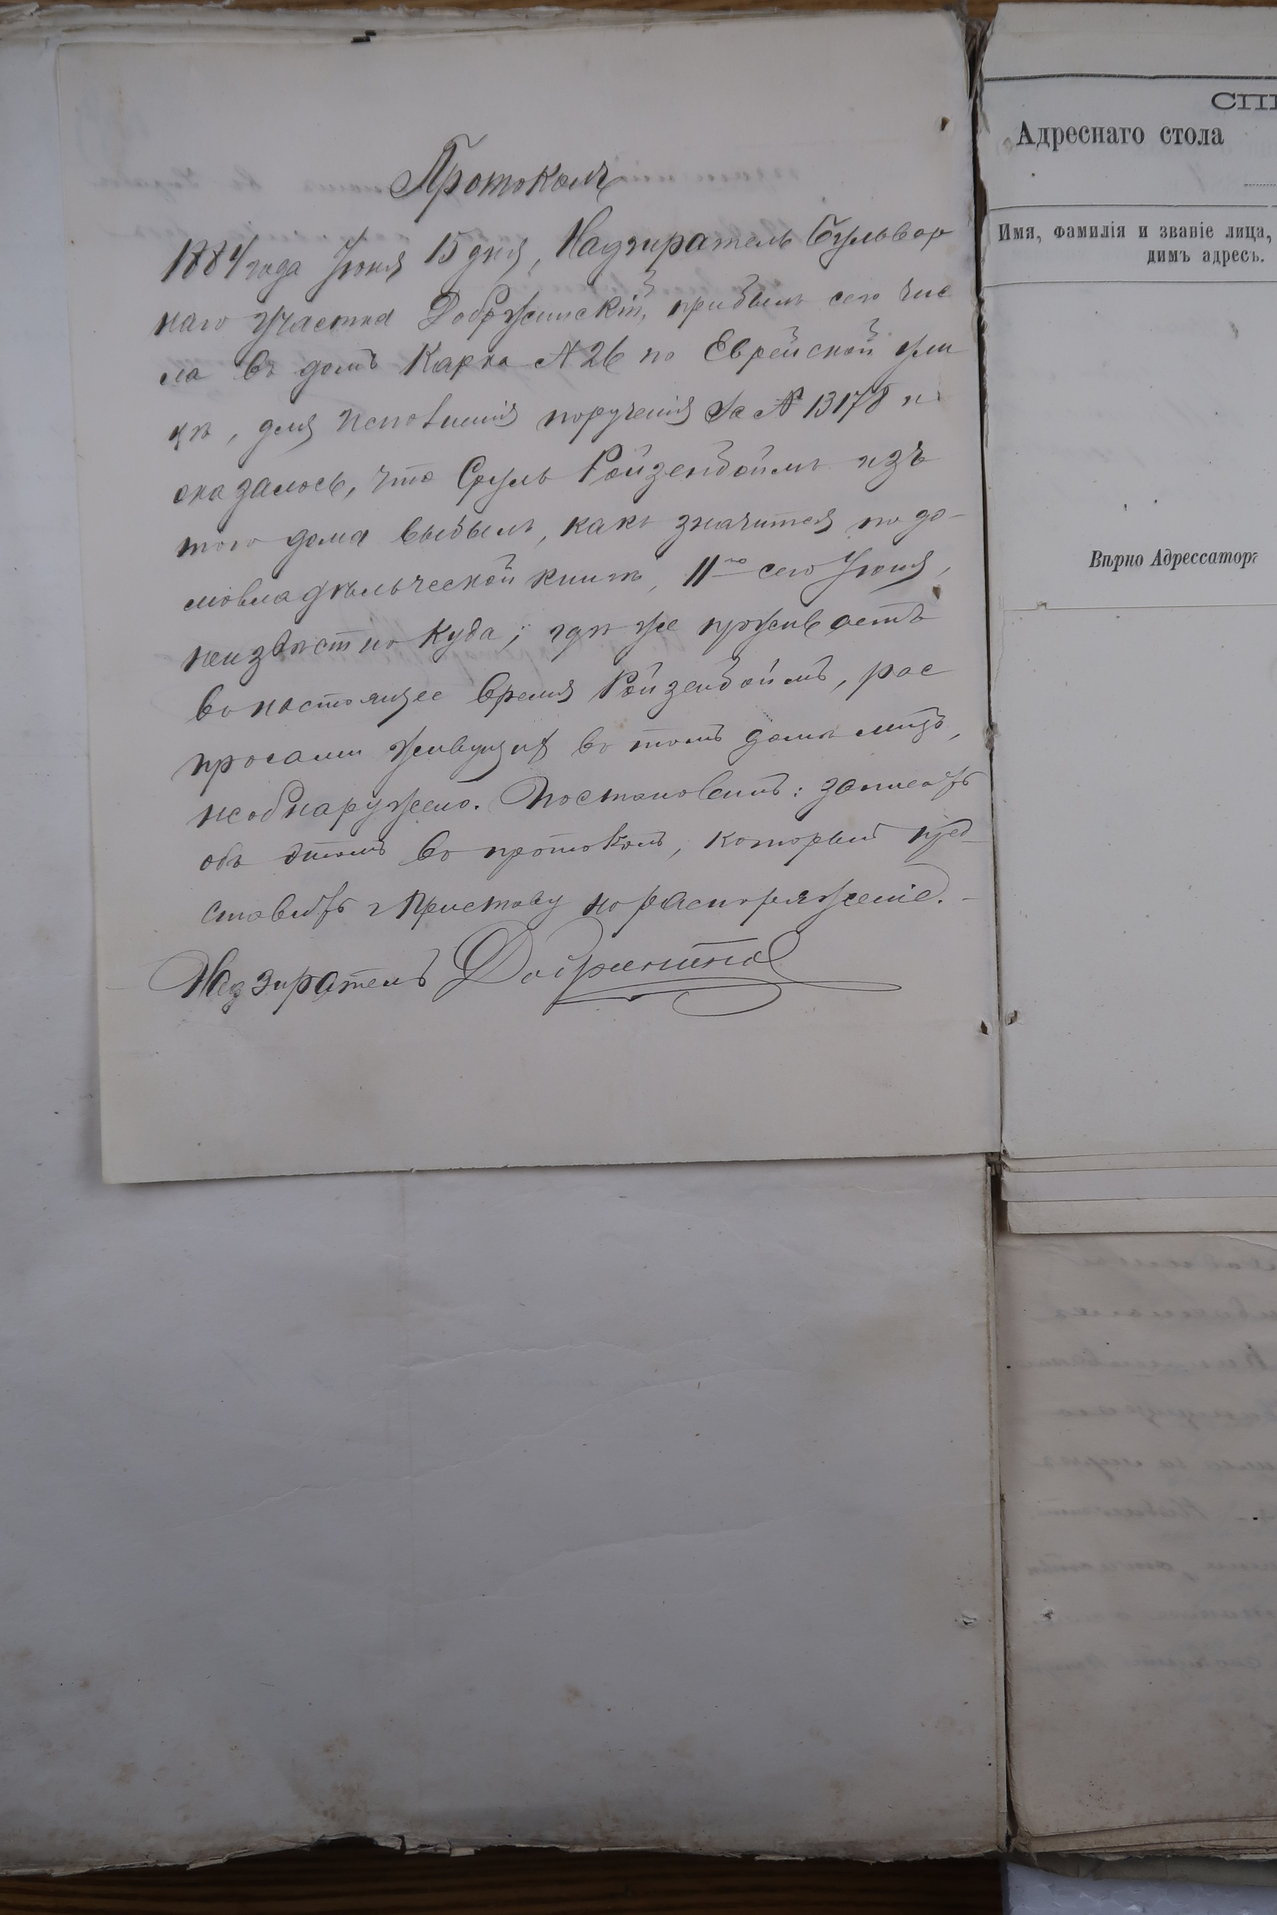 Протоколъ
1884 года Іюня 15 дня, Надзиратель Бульвар
наго участка Добржинскій, прибылъ сего чис
ла въ домъ Карпа № 26 по Еврейской ули
цѣ, для исполненія порученія за № 13178 и
оказалось, что Сруль Ройзенбоймъ изъ
того дома выбылъ, какъ значится по до-
мовладѣльческой книгѣ, 11го сего Іюня,
неизвѣстно куда; гдѣ же проживаетъ
въ настоящее время Ройзенбоймъ, рас
просами живущихъ въ томъ домѣ лицъ,
не обнаружено. Постановилъ: записать
объ этомъ въ протоколъ, который пред-
ставить г. Приставу на распоряженіе. -
Надзиратель
СПИ
Адреснаго стола
Имя, фамилія и званіе лица,
димъ адресъ.
Вѣрно Адрессаторъ